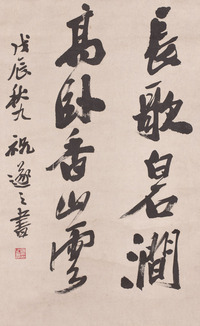 長歌白石澗
高卧香山雲
戊辰秋九 祝遂之書